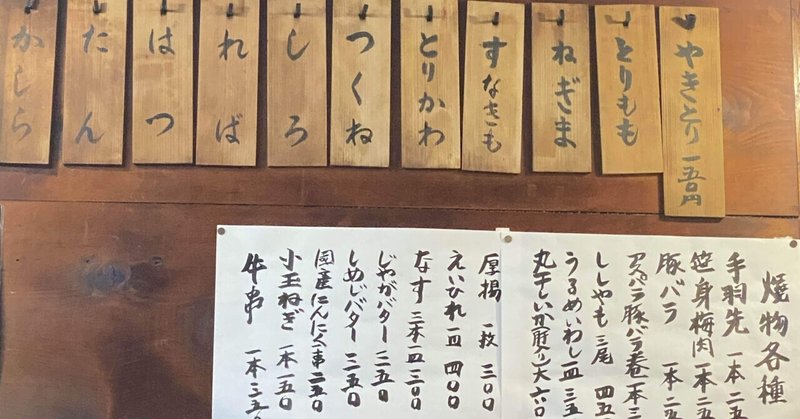 やきとり 一五〇円
とりもも
ねぎま
すなぎも
とりかわ
つくね
しろ
れば
はつ
たん
かしら
焼物各種
手羽先 一本 二
笹身梅肉 一本 二
豚バラ 一本 二
アスパラ豚バラ巻 一本 三
ししゃも 三尾 四五
うるめいわし 一皿 三五
丸干しいか 大 六〇
厚揚 一枚 三〇〇
えいひれ 一皿 四〇〇
なす 三本一皿 三〇〇
じゃがバター 二五〇
しめじバター 三五〇
国産にんにく一串 二五〇
小玉ねぎ 一本 一五〇
牛串 一本 三五〇